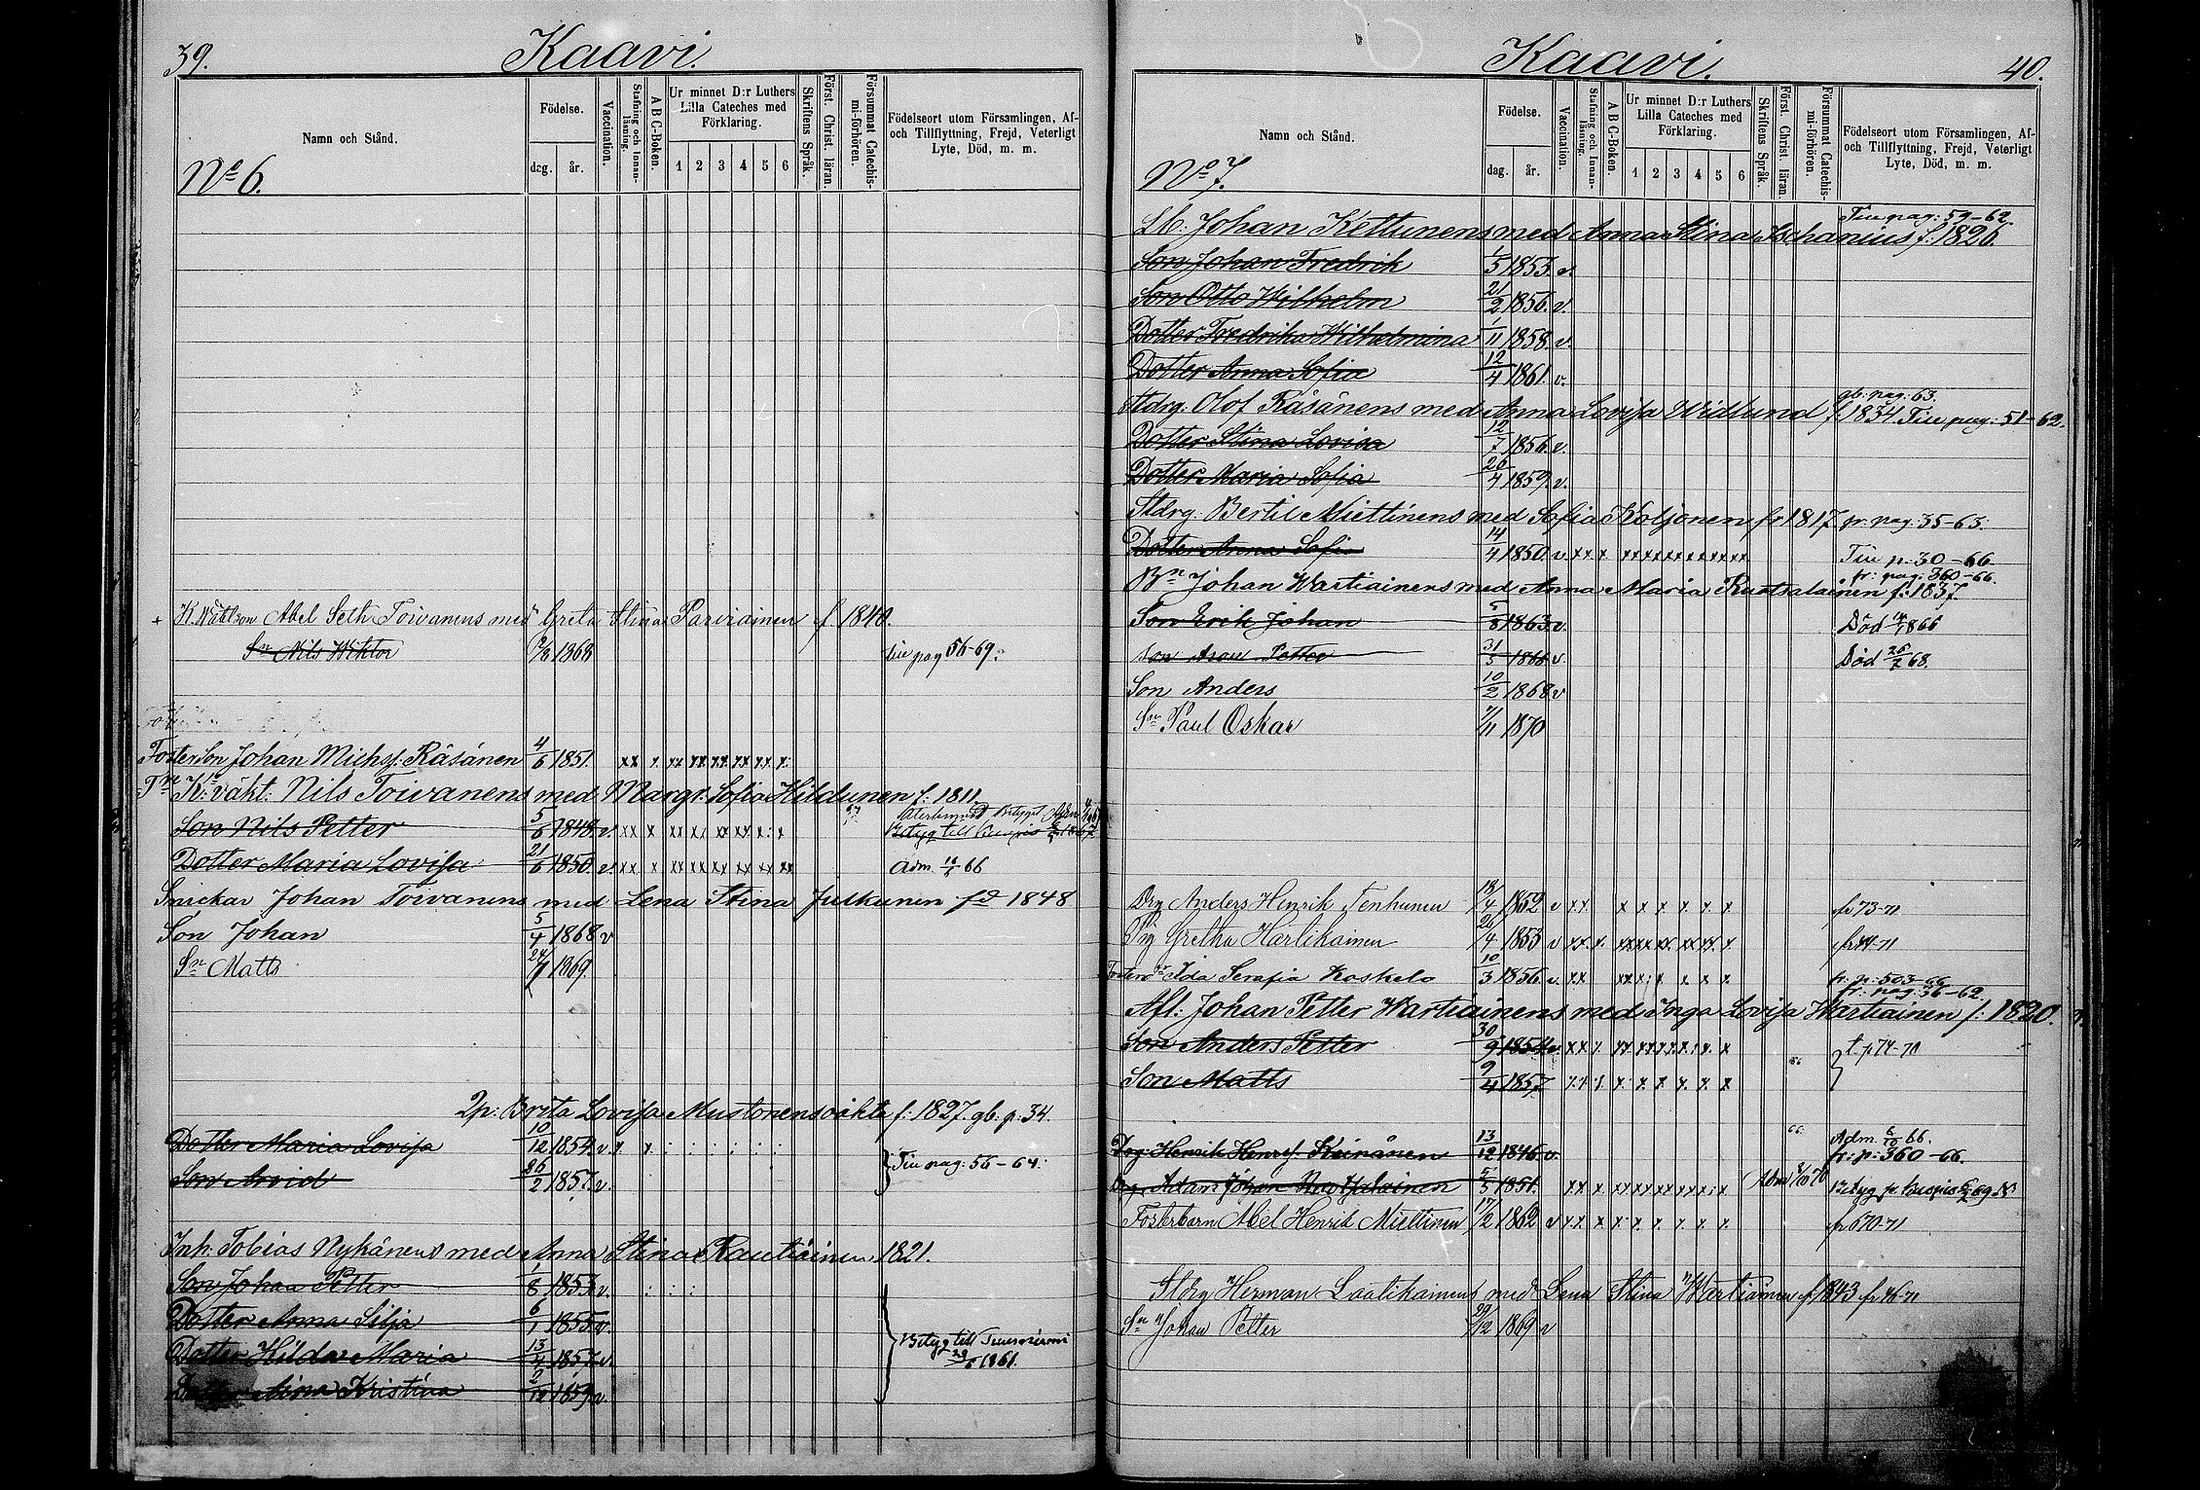 39.
Kaavi.
Namn och Stånd.
No 6.
Födelse.
dag.
år.
Vaccination.
Stafning och Innanläsning.
A B C-Boken.
Ur minnet D:r Luthers Lilla Cateches med Förklaring.
1 2 3 4 5 6
Skriftens Språk.
Först. Christ. läran.
Försummat Catechismi-förhören.
Födelseort utom Församlingen, Af- och Tillflyttning, Frejd, Veterligt Lyte, Död, m. m.
Abel Seth Toivanens med Greta Stina Parviainen f 1840.
Sn Nils Wiktor 1868 pag 56-69.
Foster Son Johan Michs. Räsänen 4/6 1851. xx x xx xx xx xx xx x
K:väkt: Nils Toivanens med Margr. Sofia Hildunen f: 1811.
Son Nils Petter 5/6 1848. v.
Dotter Maria Lovisa 21/6 1850. v. Adm. 66
Snickar Johan Toivanens med Lena Stina Julkunen fd 1848
Son Johan 5/4 1868 v
Sn Matts 1869.
Brita Lovisa Mustonens oäkta f: 1827. gb: p: 34.
Dotter Maria Lovisa 10/12 1854. v.
Son Arvid 26/2 1857. v. pag: 56-64.
Inh: Tobias Nykänens med Anna Stina Rautiainen 1821.
Son Johan Petter 1/8 1853. v.
Dotter Anna Silja 6/1 1855. v.
Dotter Hilda Maria 13/4 1857. v. Betyg till 1861.
Dotter Kristina 2/12 1859. v.
Kaavi.
40.
Namn och Stånd.
No 7.
Födelse.
dag.
år.
Vaccination.
Stafning och Innanläsning.
A B C-Boken.
Ur minnet D:r Luthers Lilla Cateches med Förklaring.
1 2 3 4 5 6
Skriftens Språk.
Först. Christ. läran.
Försummat Catechismi-förhören.
Födelseort utom Församlingen, Af- och Tillflyttning, Frejd, Veterligt Lyte, Död, m. m.
pag: 59-62.
Johan Kettunens med Anna Stina Aschanius f: 1826.
Son Johan Fredrik 1/5 1853. v.
Son Otto Wilhelm 21/2 1856. v.
Dotter Fredrika Wilhelmina 1/11 1858. v.
Dotter Anna Sofia 12/4 1861. v.
gb: pag: 63.
Stdrg: Olof Räsänens med Anna Lovisa Widlund f. 1834. pag: 51-62.
Dotter Stina Lovisa 12/7 1856. v.
Dotter Maria Sofia 26/4 1859. v.
Stdrg. Bertil Miettinens med Sofia Koljonen f: 1817. fr: pag: 35-63.
Dotter Anna Sofia 14/4 1850. v. p: 30-66
fr: pag: 360-66.
Bn Johan Wartiainens med Anna Maria f: 1837.
Son Erik Johan 5/8 1863. v. Död 1866
Son Aron Petter 31/5 1866 v Död 26/2 68.
Son Anders 10/2 1868 v
Sn Paul Oskar 1870
Drg Anders Henrik Tenhunen 18/4 1852 v xx x x x x x x fr 73-71
Pig Gretha Harlikainen 26/4 1853 v fr 44-71
Ida Serafia Koskelo 10/3 1856. v. fr: p: 503-66
fr: pag: 36-62.
Afl: Johan Petter Wartiainens med Inga Lovisa Wartiainen f: 1820.
Son Anders Petter 30/9 1854. v. t. p 74-70
Son Matts 9/4 1857
Drg: Henrik Henrs. Keinänen 13/12 1846. v. 66. Adm. 6/10 66. fr: p: 360-66.
Drg. Adam Johan 5/5 1851. Betyg fr.
Fosterbarn Abel Henrik Miettinen 17/2 1862 v fr 670-71
Stdrg Herman Laatikainens med Lena Stina Wartiainen f 1843 fr 76-71
Sn Johan Petter 29/12 1869 v